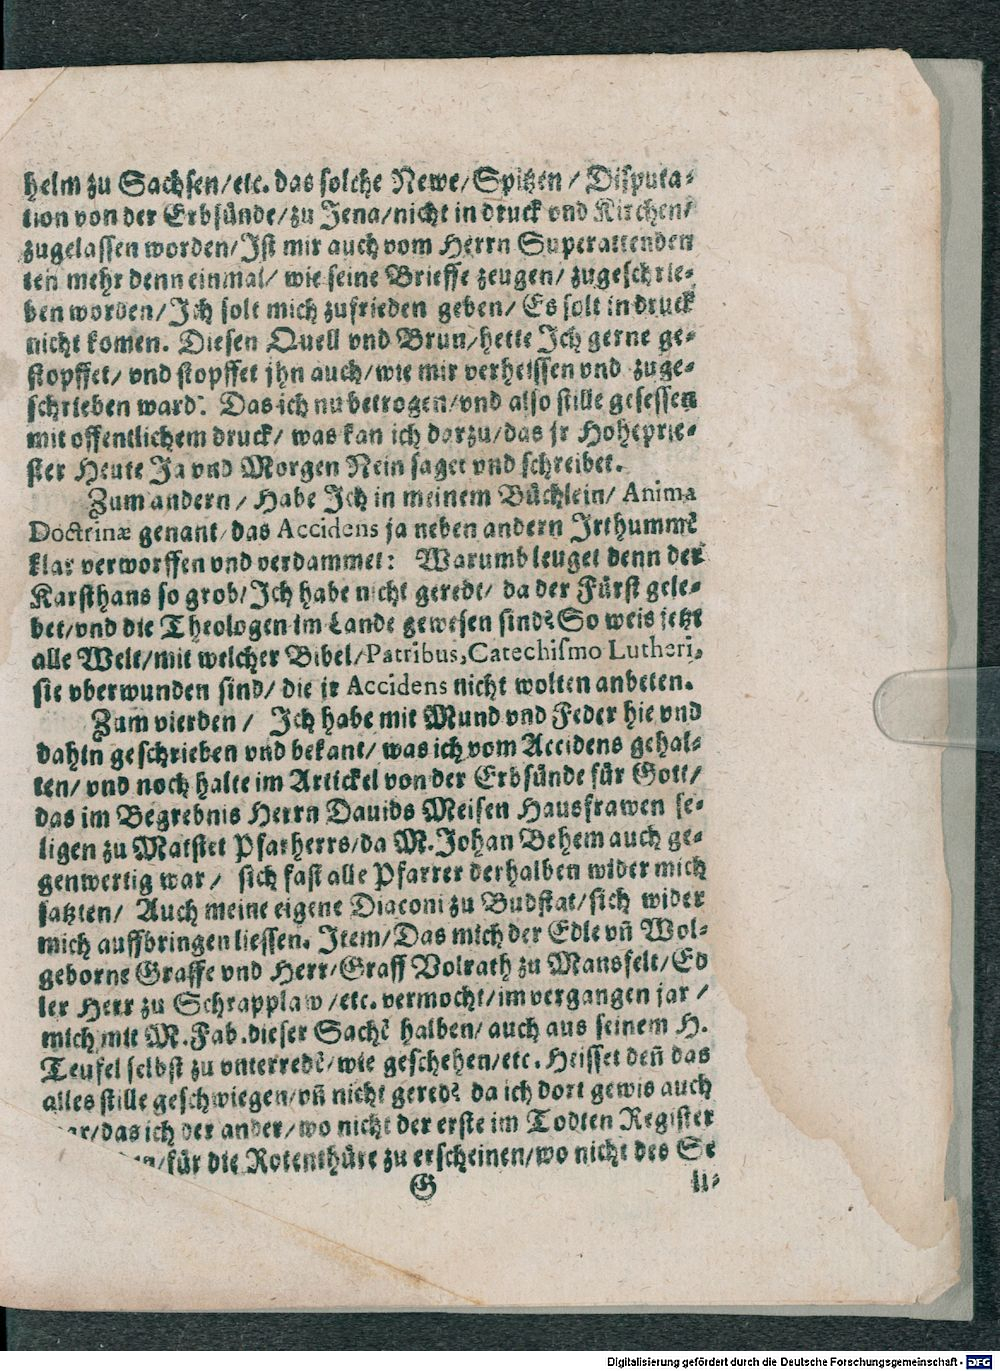 helm zu Sachsen/etc. das solche Newe/Spitzen/Disputa-
tion von der Erbsünde/zu Jena/nicht in druck vnd Kirchen/
zugelassen worden/Ist mir auch vom Herrn Superattenden
ten mehr denn einmal/ wie seine Brieffe zeugen/ zugeschrie-
ben worden/Ich solt mich zufrieden geben/ Es solt in druck
nicht komen. Diesen Quell vnd Brun/hette Ich gerne ge-
stopffet/ vnd stopffet jhn auch/wie mir verheissen vnd zuge-
schrieben ward. Das ich nu betrogen/vnd also stille gesessen
mit offentlichem druck/ was kan ich darzu/das jr Hoheprie-
ster Heute Ja vnd Morgen Nein saget vnd schreibet.
Zum andern/ Habe Ich in meinem Büchlein/ Anima
Doctrinæ genant/das Accidens ja neben andern Irthummē
klar verworffen vnd verdammet: Warumb leuget denn der
Karsthans so grob/Ich habe nicht geredt/ da der Fürst gele-
bet/vnd die Theologen im Lande gewesen sind? So weis jetzt
alle Welt/mit welcher Bibel/Patribus,Catechismo Lutheri,
sie vberwunden sind/ die jr Accidens nicht wolten anbeten.
Zum vierden/ Ich habe mit Mund vnd Feder hie vnd
dahin geschrieben vnd bekant/ was ich vom Accidens gehal-
ten/ vnd noch halte im Artickel von der Erbsünde für Gott/
das im Begrebnis Herrn Dauids Meisen Hausfrawen se-
ligen zu Matstet Pfarherrs/da M. Johan Behem auch ge-
genwertig war/ sich fast alle Pfarrer derhalben wider mich
satzten/ Auch meine eigene Diaconi zu Budstat/sich wider
mich auffbringen liessen. Item/Das mich der Edle vñ Wol-
geborne Graffe vnd Herr/Graff Volrath zu Mansfelt/Ed
ler Herr zu Schrapplaw/etc. vermocht/im vergangen jar/
mich mit M. Fab. dieser Sachē halben/ auch aus seinem H.
Teufel selbst zu vnterredē/wie geschehen/etc. Heisset deñ das
alles stille geschwiegen/vñ nicht gered? da ich dort gewis auch
/das ich der ander/wo nicht der erste im Todten Register
/für die Rotenthüre zu erscheinen/wo nicht des Se
G li-
Digitalisierung gefördert durch die Deutsche Forschungsgemeinschaft - DFG